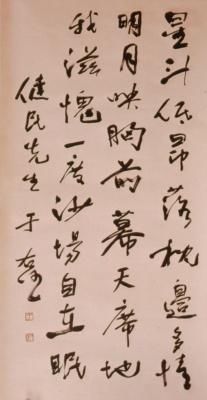 星斗低昂落枕邊多情
明月映胸前幕天席地
我滋愧一度沙場自在眠
健民先生 于右任